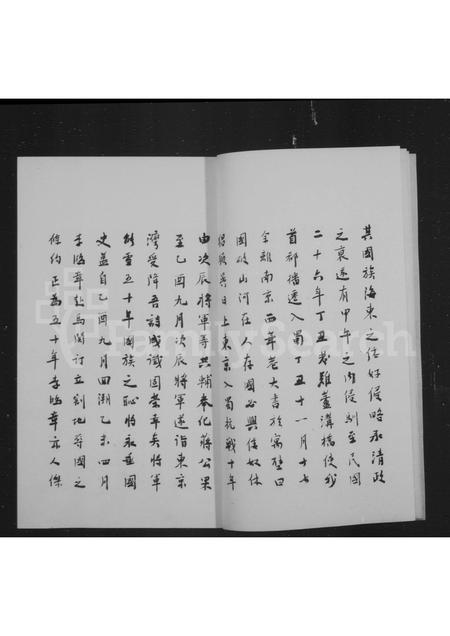 其國族海東之倭奴侵略承清政
之衰遂有甲午之約侵馴至民國
二十六年丁丑發難蘆溝橋使我
首都播遷入蜀丁丑十一月十七
余離南京西年老大書於寓壁曰
國破山河在人存國必興倭奴休
得 異日上東京入蜀抗戰十年
由次辰將軍等共輔奉化蔣公果
至乙酉九月次辰將軍遂詣東京
灣受降吾詩成識國榮幸矣將軍
雪五十年國族之恥將永垂國
史蓋自乙酉九月四溯乙未四月
李鴻章赴馬關訂立割地辱國之
條約正為五十年李鴻章亦人傑
FamilySearch